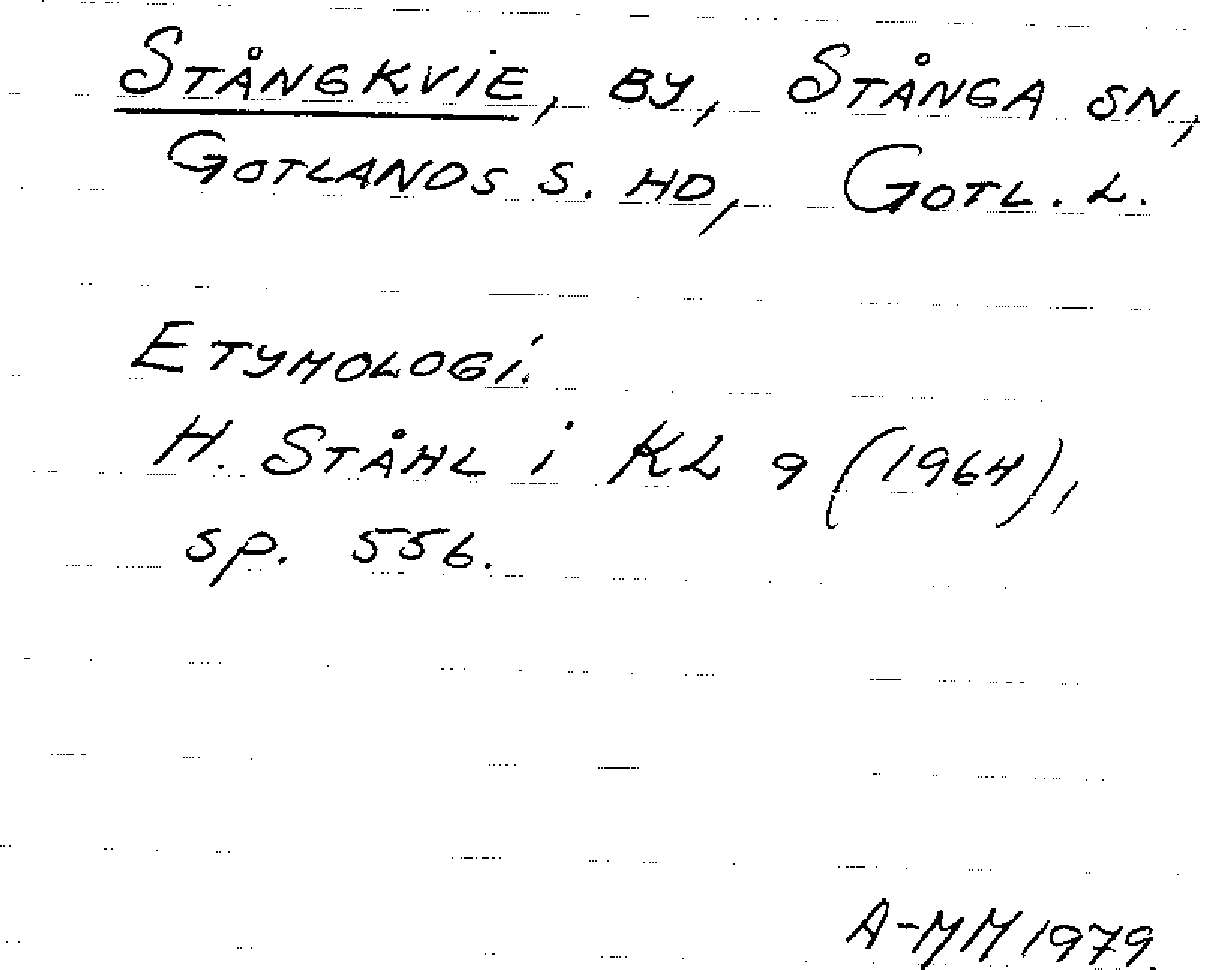 STÅNGKVIE, BY, STÅNGA SN,
GOTLANDS S. HD, GOTL. L.
ETYMOLOGI.
H. STÅHL i KL 9 (1964),
sp. 556.
A-MM 1979.